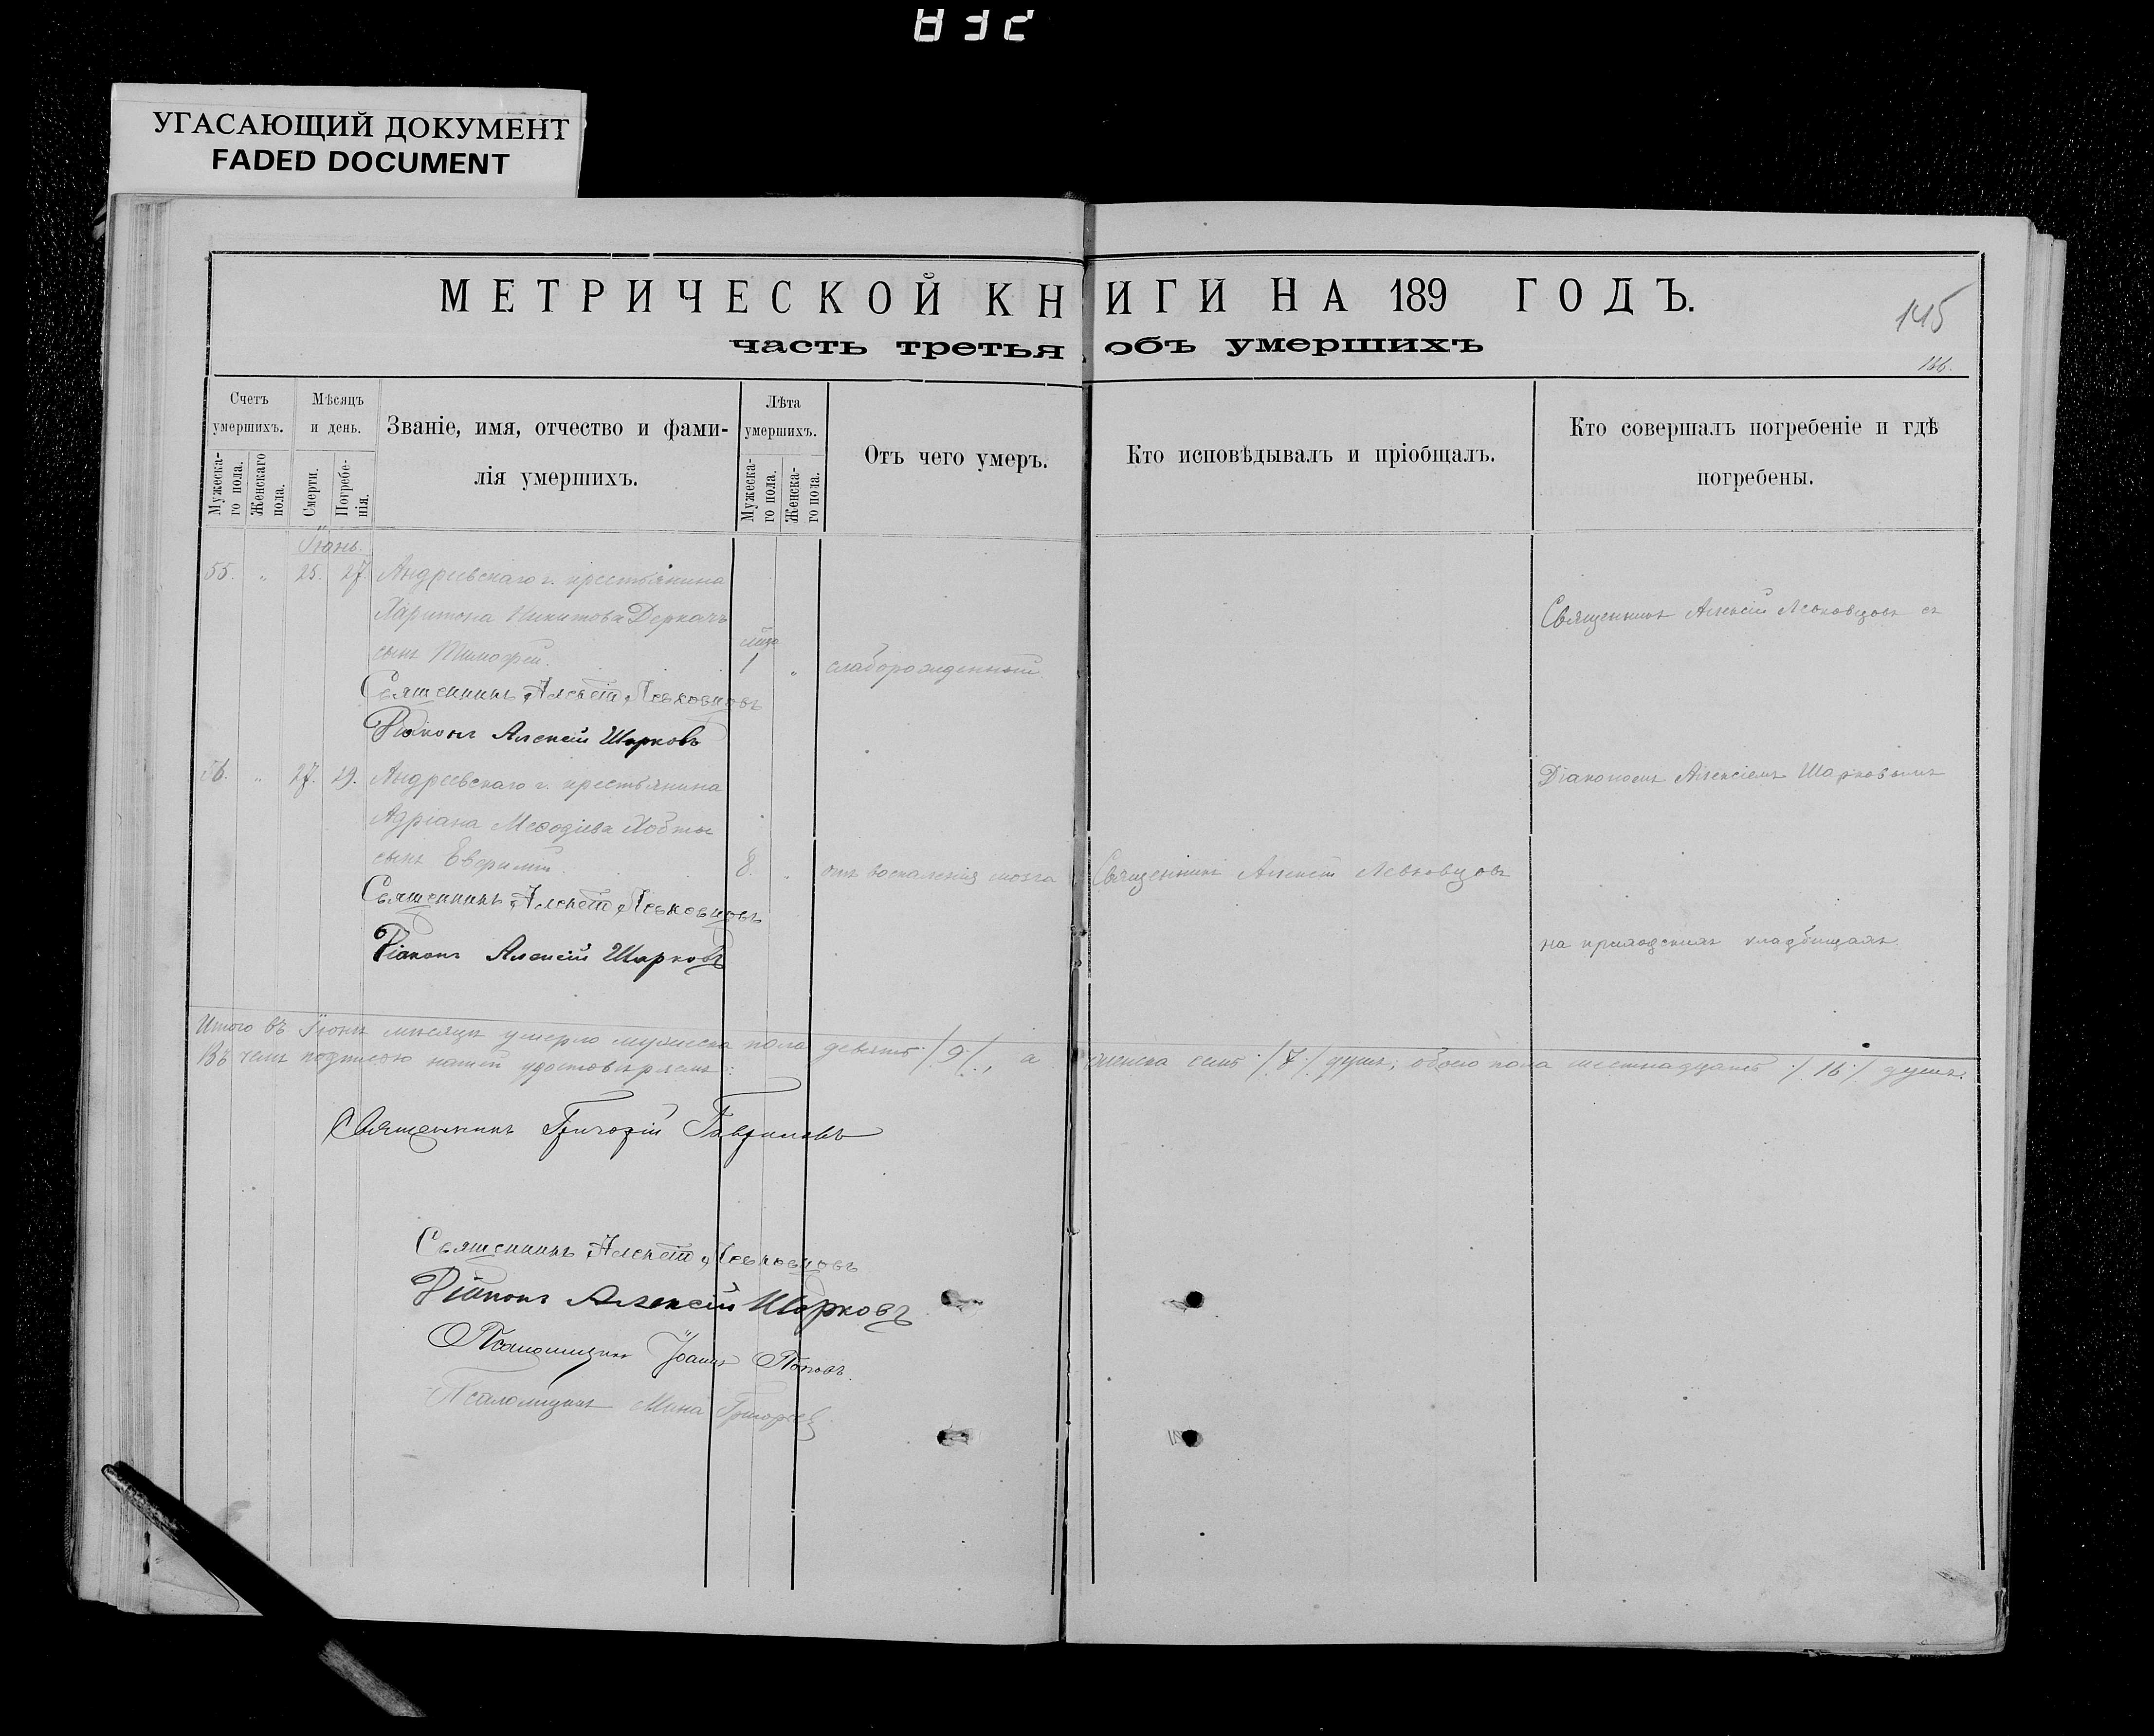 832
УГАСАЮЩИЙ ДОКУМЕНТ
FADED DOCUMENT
МЕТРИЧЕСКОЙ КНИГИ НА 189 ГОДЪ.
145
часть третья объ умершихъ
166.
Счетъ умершихъ.
Мужескаго пола.
Женскаго пола.
Мѣсяцъ и день.
Смерти.
Погребенія.
Званіе, имя, отчество и фамилія умершихъ.
Лѣта умершихъ.
Мужескаго пола.
Женскаго пола.
Отъ чего умеръ.
Кто исповѣдывалъ и пріобщалъ.
Кто совершалъ погребеніе и гдѣ погребены.
Іюнь.
55. „ 25. 27. Андреевскаго с. крестьянина
Харитона Никитова Деркачъ
сынъ Тимофей. 1 „ слаборожденный
Священникъ Алексѣй Левковцовъ съ
Священникъ Алексѣй Левковцовъ
Діаконъ Алексѣй Шарковъ
56. „ 27. 29. Андреевскаго с. крестьянина
Діакономъ Алексіемъ Шарковымъ
Адріана Меѳодіева Кобты
сынъ Евфимій. 8. „ отъ воспаленія мозга Священникъ Алексѣй Левковцовъ
Священникъ Алексѣй Левковцовъ
Діаконъ Алексѣй Шарковъ
на приходскихъ кладбищахъ.
Итого въ Іюнѣ мѣсяцѣ умерло мужеска пола девять /9/, а женска семь /7/ душъ; обоего пола шестнадцать /16/ душъ.
Въ чемъ подписью нашей удостовѣряемъ:
Священникъ Григорій Гавриловъ
Священникъ Алексѣй Левковцовъ
Діаконъ Алексѣй Шарковъ
Псаломщикъ Іоаннъ Поповъ.
Псаломщикъ Мина Григорьев